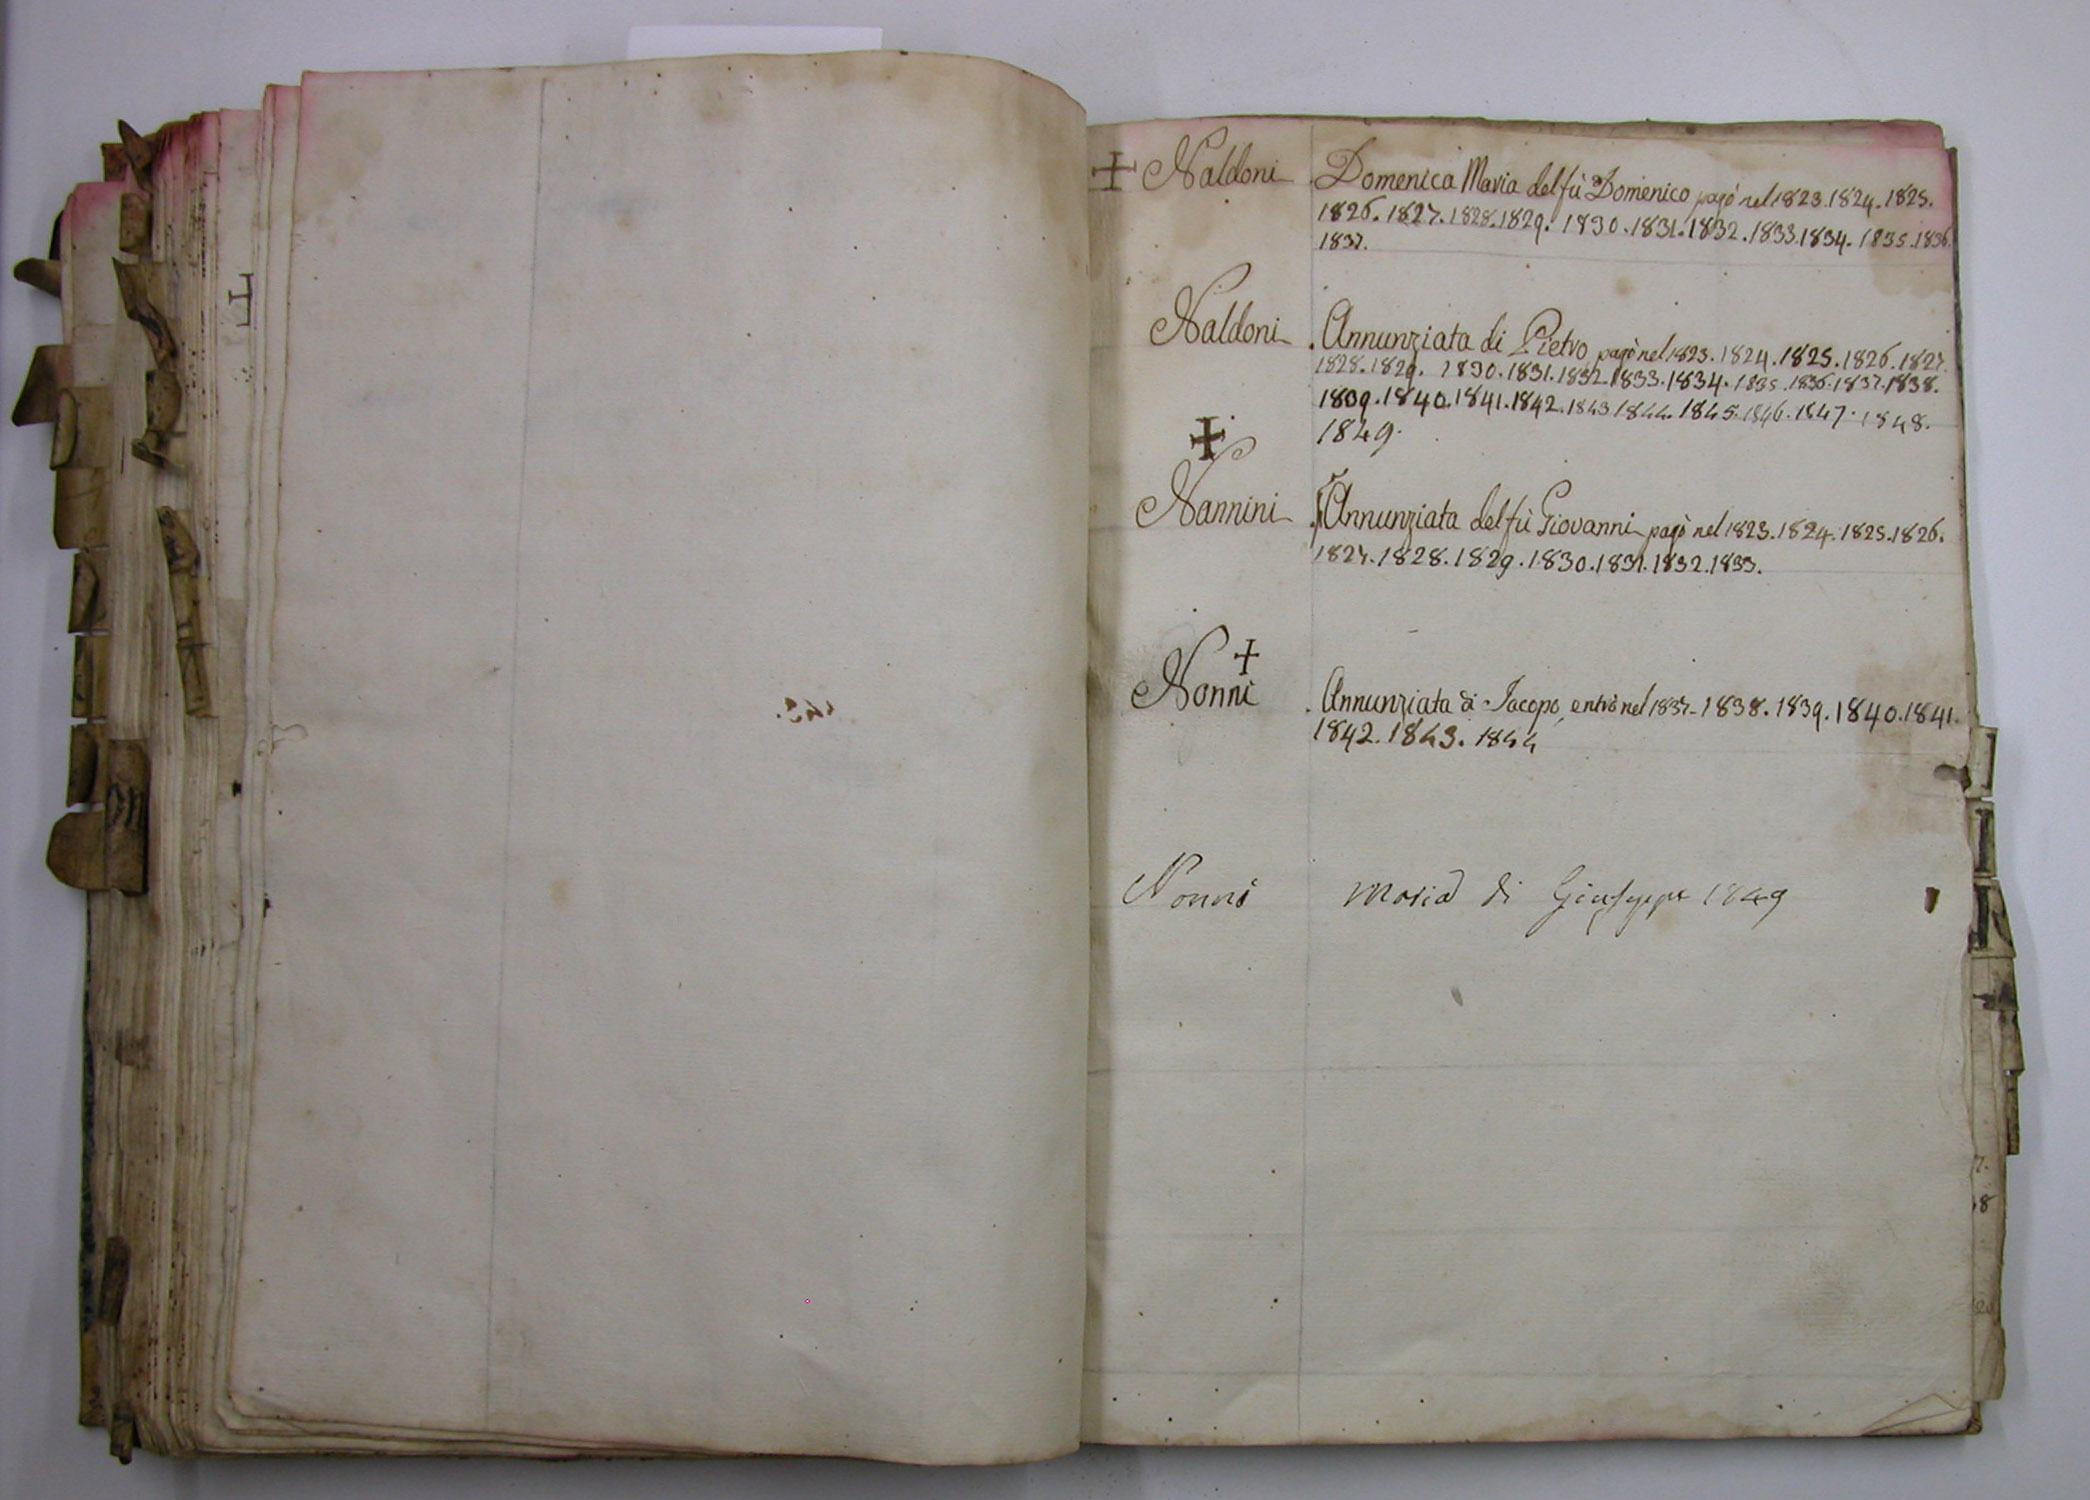 Naldoni Domenica Maria del fù Domenico pagò nel 1823. 1824. 1825.
1826. 1827. 1828. 1829. 1830. 1831. 1832. 1833. 1834. 1835. 1836.
1837.
Naldoni Annunziata di Pietro pagò nel 1823. 1824. 1825. 1826. 1827.
1828. 1829. 1830. 1831. 1832. 1833. 1834. 1835. 1836. 1837. 1838.
1839. 1840. 1841. 1842. 1843 1844. 1845. 1846. 1847. 1848.
1849.
Nannini Annunziata del fù Giovanni pagò nel 1823. 1824. 1825. 1826.
1827. 1828. 1829. 1830. 1831. 1832. 1833.
Nonni Annunziata di Iacopo, entrò nel 1837. 1838. 1839. 1840. 1841.
1842. 1843. 1844
Nonni Maria di Giuseppe 1849